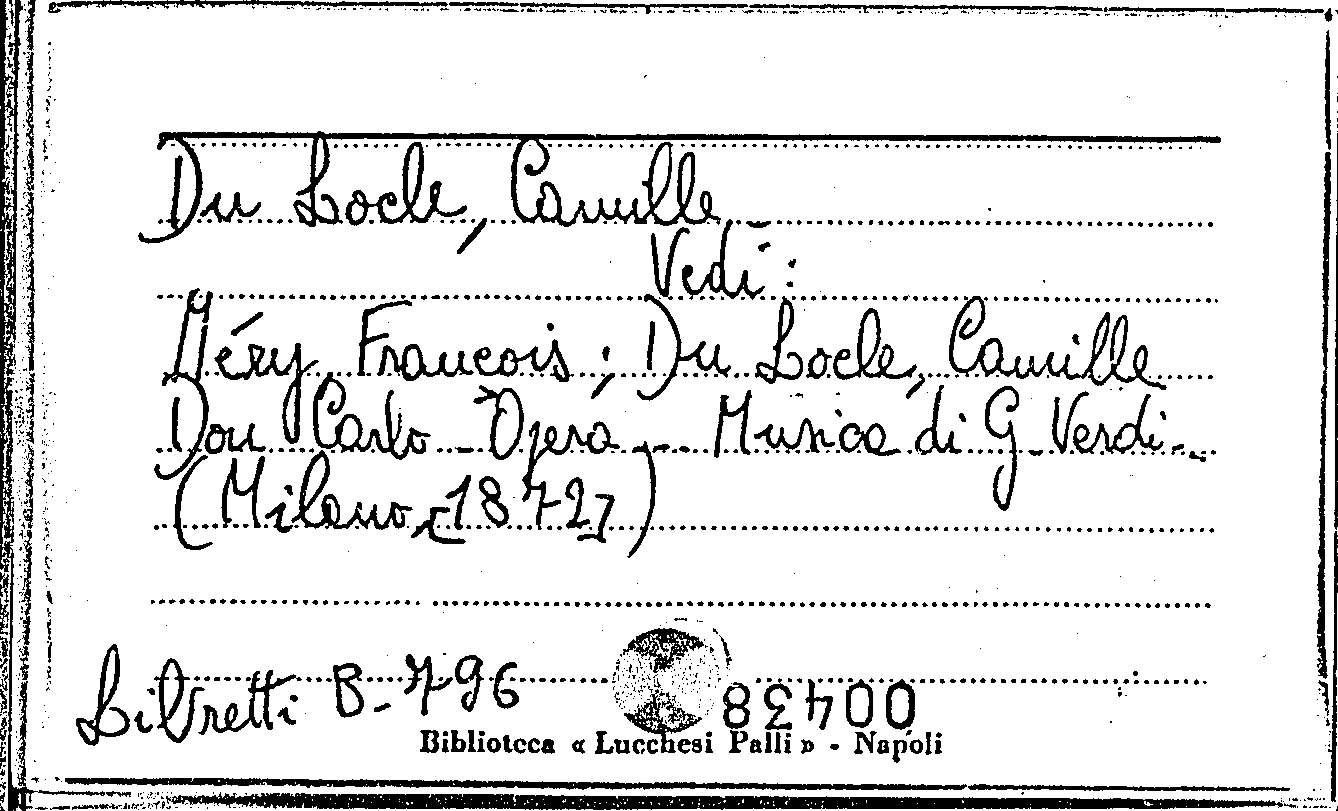 Du Locle, Camille -
Vedi:
Méry François; Du Locle, Camille
Don Carlo - Opera - Musica di G. Verdi -
(Milano, [1872])
Libretti B-796
00438
Biblioteca « Lucchesi Palli » - Napoli